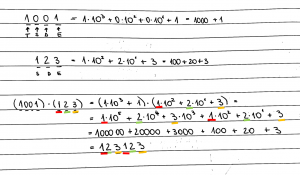 1001 = 1·10³+0·10²+0·10¹+1 = 1000+1
T S D E
123 = 1·10²+2·10¹+3 = 100+20+3
S D E
(1001)·(123) = (1·10³+1)·(1·10²+2·10¹+3) =
= 1·10⁵+2·10⁴+3·10³+1·10²+2·10¹+3
= 100000+20000+3000+100+20+3
= 123123